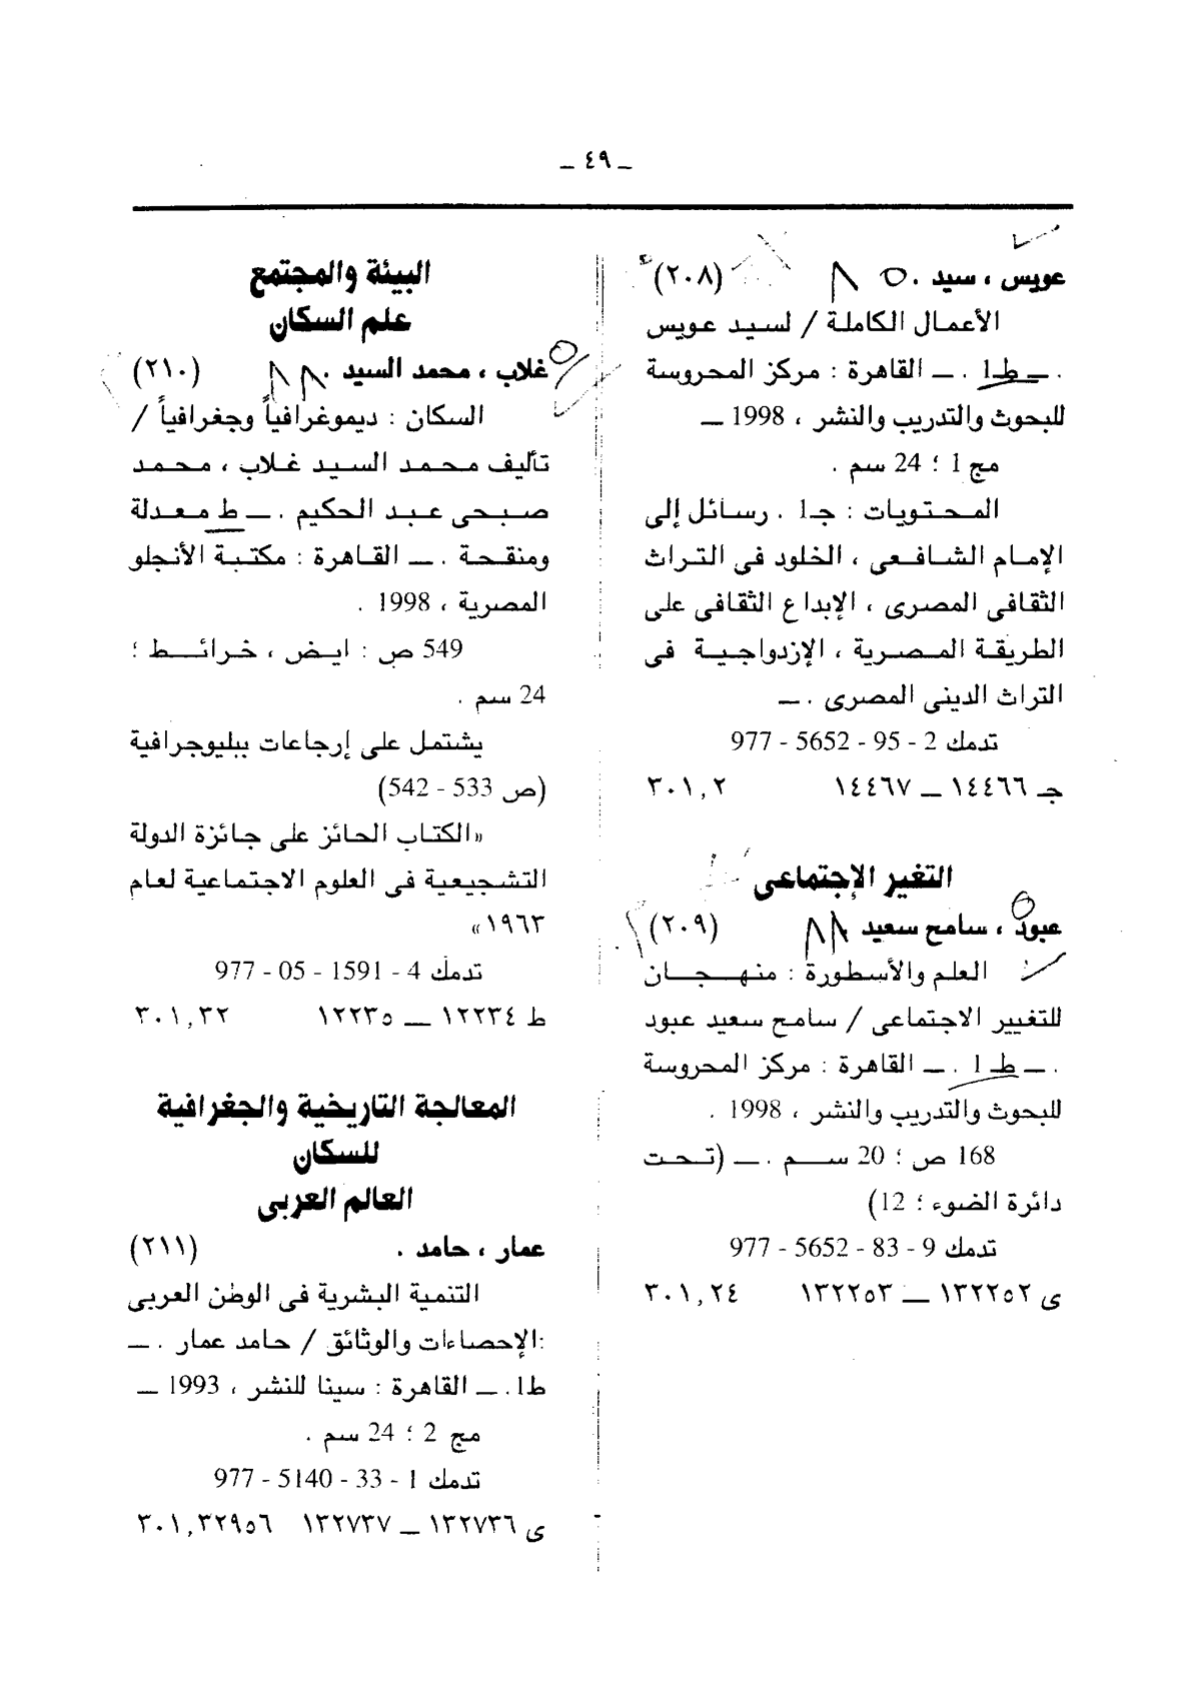 ـ ٤٩ ـ
عويس ، سيد . (٢٠٨)
الأعمال الكاملة / لسيد عويس
. ــ ط1 . ــ القاهرة : مركز المحروسة
للبحوث والتدريب والنشر ، 1998 ــ
مج 1 ؛ 24 سم .
المحتويات : جـ1 . رسائل إلى
الإمام الشافعى ، الخلود فى التراث
الثقافى المصرى ، الإبداع الثقافى على
الطريقة المصرية ، الإزدواجية فى
التراث الدينى المصرى . ــ
تدمك 2 - 95 - 5652 - 977
جـ ١٤٤٦٦ ــ ١٤٤٦٧ ٣٠١,٢
التغير الإجتماعى
عبود ، سامح سعيد (٢٠٩)
العلم والأسطورة : منهجان
للتغيير الاجتماعى / سامح سعيد عبود
. ــ ط 1 . ــ القاهرة : مركز المحروسة
للبحوث والتدريب والنشر ، 1998 .
168 ص ؛ 20 سم . ــ (تحت
دائرة الضوء ؛ 12)
تدمك 9 - 83 - 5652 - 977
ى ١٣٢٢٥٢ ــ ١٣٢٢٥٣ ٣٠١,٢٤
البيئة والمجتمع
علم السكان
غلاب ، محمد السيد . (٢١٠)
السكان : ديموغرافياً وجغرافياً /
تأليف محمد السيد غلاب ، محمد
صبحى عبد الحكيم . ــ ط معدلة
ومنقحة . ــ القاهرة : مكتبة الأنجلو
المصرية ، 1998 .
549 ص : ايض ، خرائط ؛
24 سم .
يشتمل على إرجاعات ببليوجرافية
(ص 533 - 542)
«الكتاب الحائز على جائزة الدولة
التشجيعية فى العلوم الاجتماعية لعام
١٩٦٣»
تدمك 4 - 1591 - 05 - 977
ط ١٢٢٣٤ ــ ١٢٢٣٥ ٣٠١,٣٢
المعالجة التاريخية والجغرافية
للسكان
العالم العربى
عمار ، حامد . (٢١١)
التنمية البشرية فى الوطن العربى
:الإحصاءات والوثائق / حامد عمار . ــ
ط1. ــ القاهرة : سينا للنشر ، 1993 ــ
مج 2 ؛ 24 سم .
تدمك 1 - 33 - 5140 - 977
ى ١٣٢٧٣٦ ــ ١٣٢٧٣٧ ٣٠١,٣٢٩٥٦